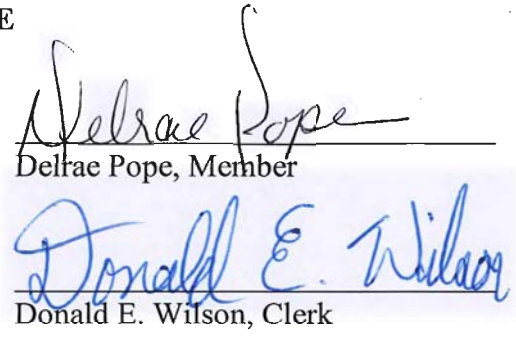 E
Delrae Pope
Delrae Pope, Member
Donald E. Wilson
Donald E. Wilson, Clerk